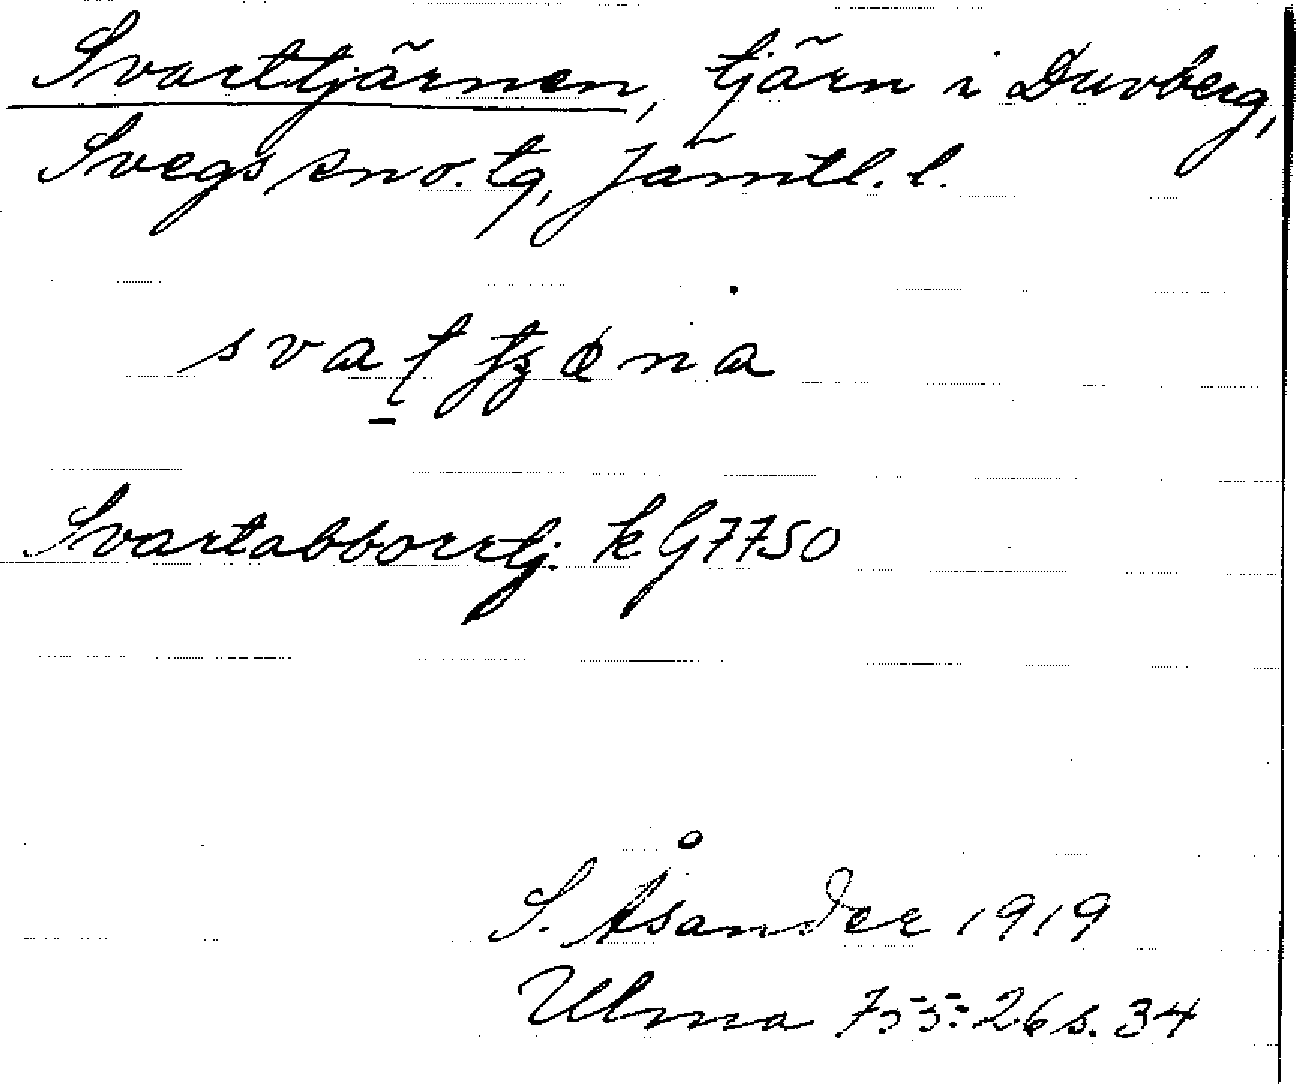 Svarttjärnen, tjärn i Duvberg,
Svegs sno. tg, Jämtl. l.
Svartabborrtj. k G7750
S. Åsander 1919
Ulma 755:26 s. 34